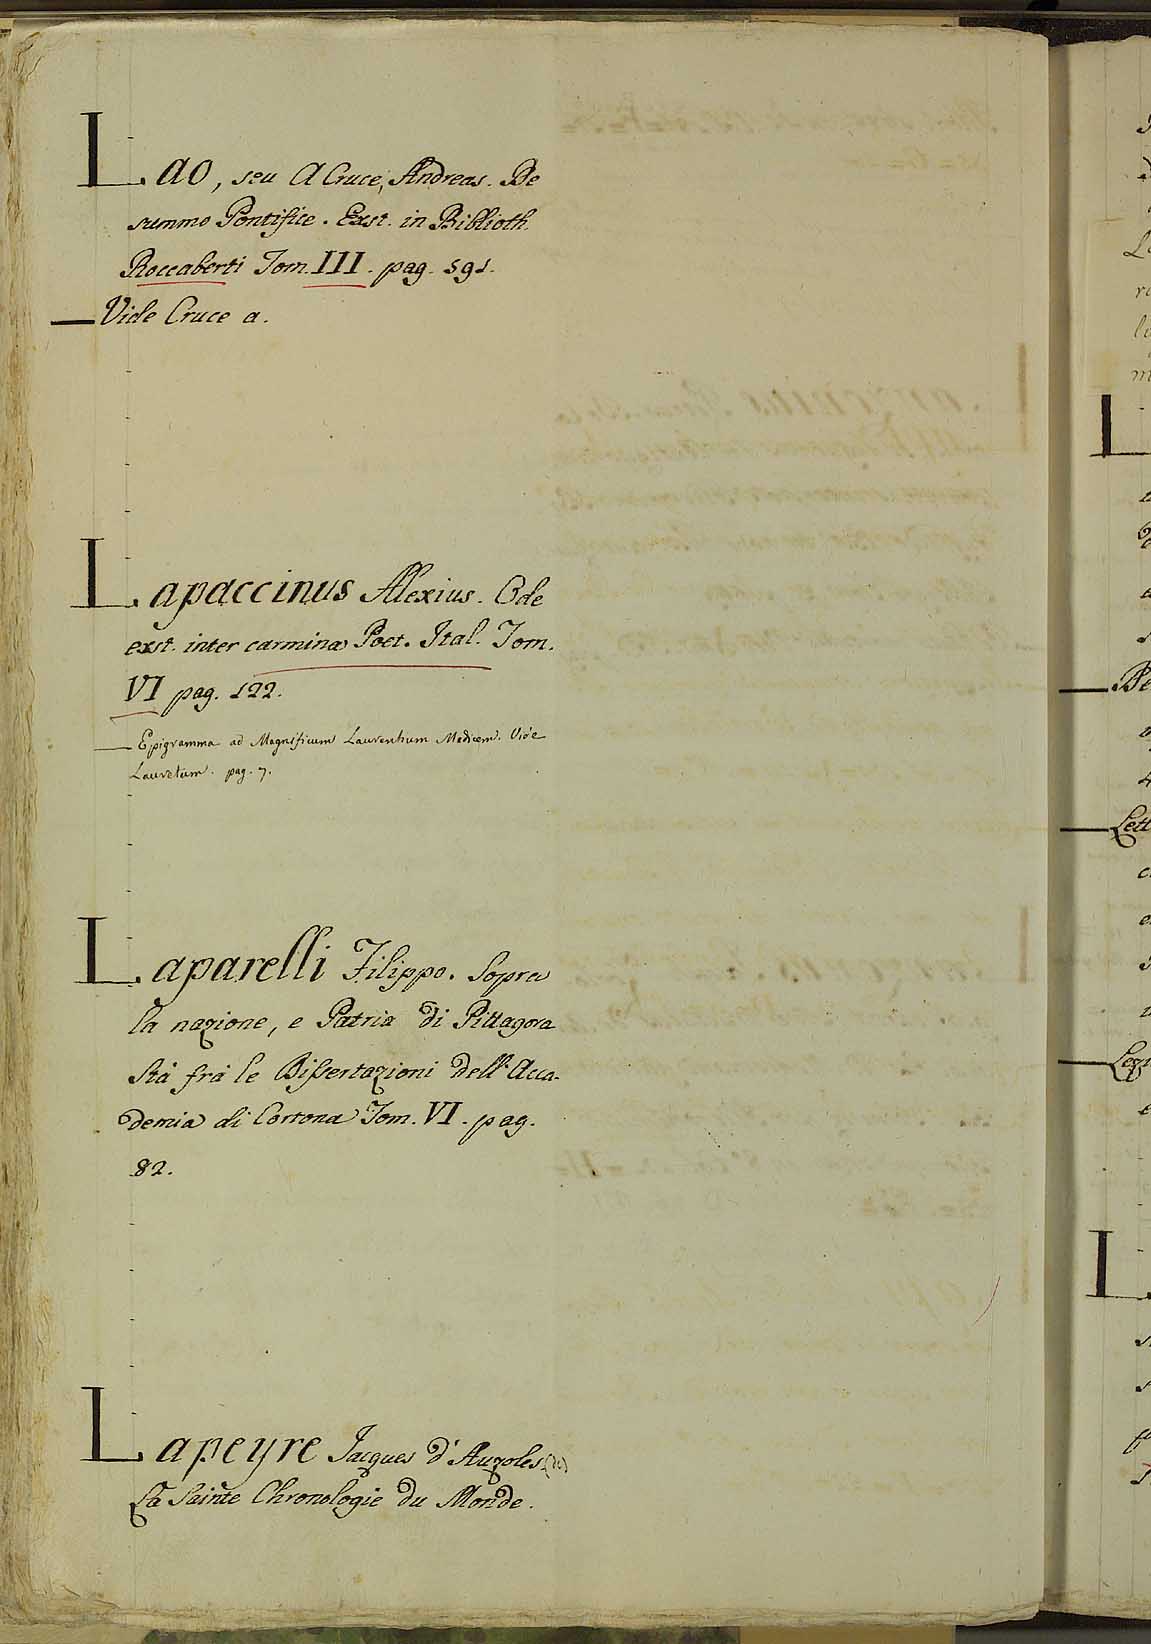 Lao, seu A Cruce, Andreas. De
summo Pontifice. Exst. in Biblioth.
Roccaberti Tom. III. pag. 591.
Vide Cruce a.
Lapaccinus Alexius. Ode
exst. inter carmina Poet. Ital. Tom.
VI pag. 122.
Epigramma ad Magnificum Laurentium Medicem. Vide
Lauretum. pag. 7.
Laparelli Filippo. Sopra
la nazione, e Patria di Pittagora
stà frà le Dissertazioni dell'Acca-
demia di Cortona Tom. VI. pag.
82.
Lapeyre Jacques d'Auzoles (de)
La Sainte Chronologie du Monde.
De
Lett
Lezi